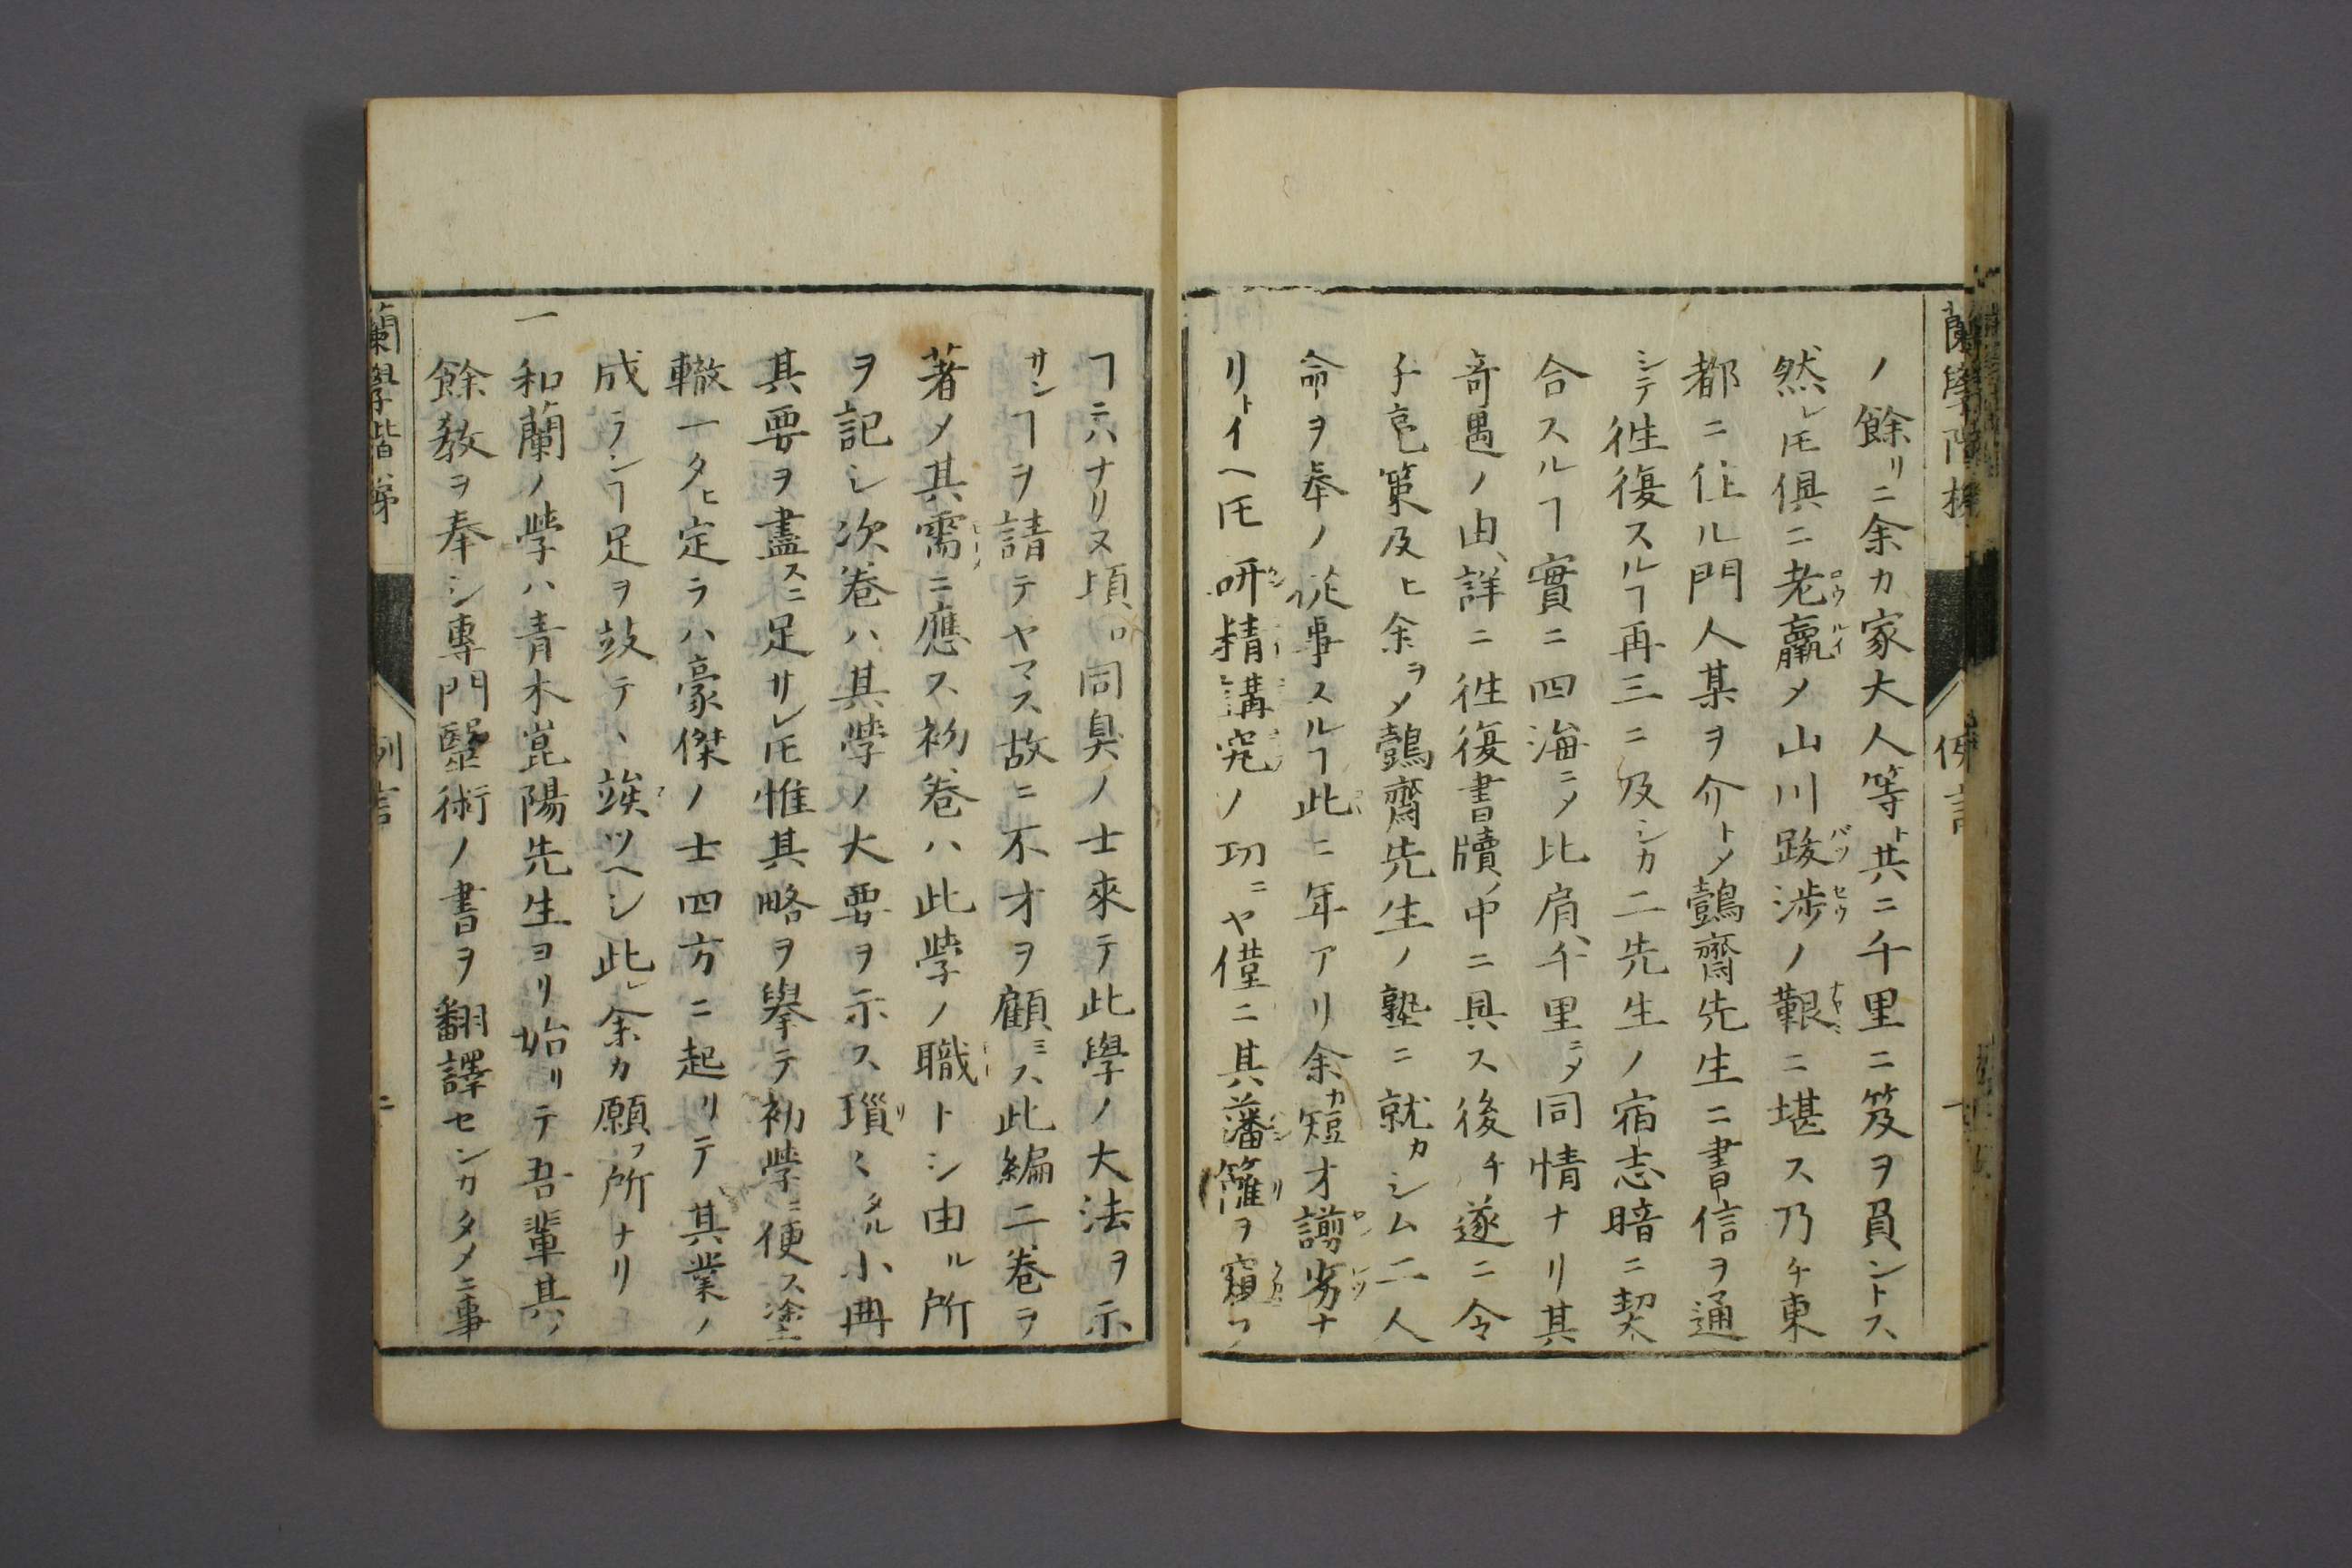 蘭學階梯
例言
ノ餘リニ余カ家大人等ト共ニ千里ニ笈ヲ負ントス
然レ𪜈倶ニ老羸メ山川跋渉ノ艱ニ堪ス乃チ東
都ニ住ル門人某ヲ介トメ鷧齋先生ニ書信ヲ通
シテ徃復スルヿ再三ニ及シカ二先生ノ宿志暗ニ契
合スルヿ實ニ四海ニメ比肩千里ニメ同情ナリ其
竒遇ノ由詳ニ徃復書牘中ニ具ス後チ遂ニ令
子亳策及ヒ余ヲメ鷧齋先生ノ塾ニ就カシム二人
命ヲ奉ノ從事スルヿ此ニ年アリ余カ短才謭劣ナ
リトイヘ𪜈研精講究ノ功ニヤ僅ニ其藩籬ヲ窺フ
ヿニハナリヌ頃口同臭ノ士來テ此學ノ大法ヲ示
サンヿヲ請テヤマス故ニ不才ヲ顧ミス此編二卷ヲ
著メ其需ニ應ス初卷ハ此學ノ職トシ由ル所
ヲ記シ次卷ハ其學ノ大要ヲ示ス瑣〻タル小冊
其要ヲ盡スニ足サレ𪜈惟其略ヲ擧テ初學ニ便ス塗
轍一タヒ定ラハ豪傑ノ士四方ニ起リテ其業ノ
成ランヿ足ヲ跂テヽ竢ツヘシ此レ余カ願フ所ナリ
一和蘭ノ學ハ青木崑陽先生ヨリ始リテ吾輩其ノ
餘教ヲ奉シ專門毉術ノ書ヲ翻譯センカタメニ事
蘭學階梯
例言
二